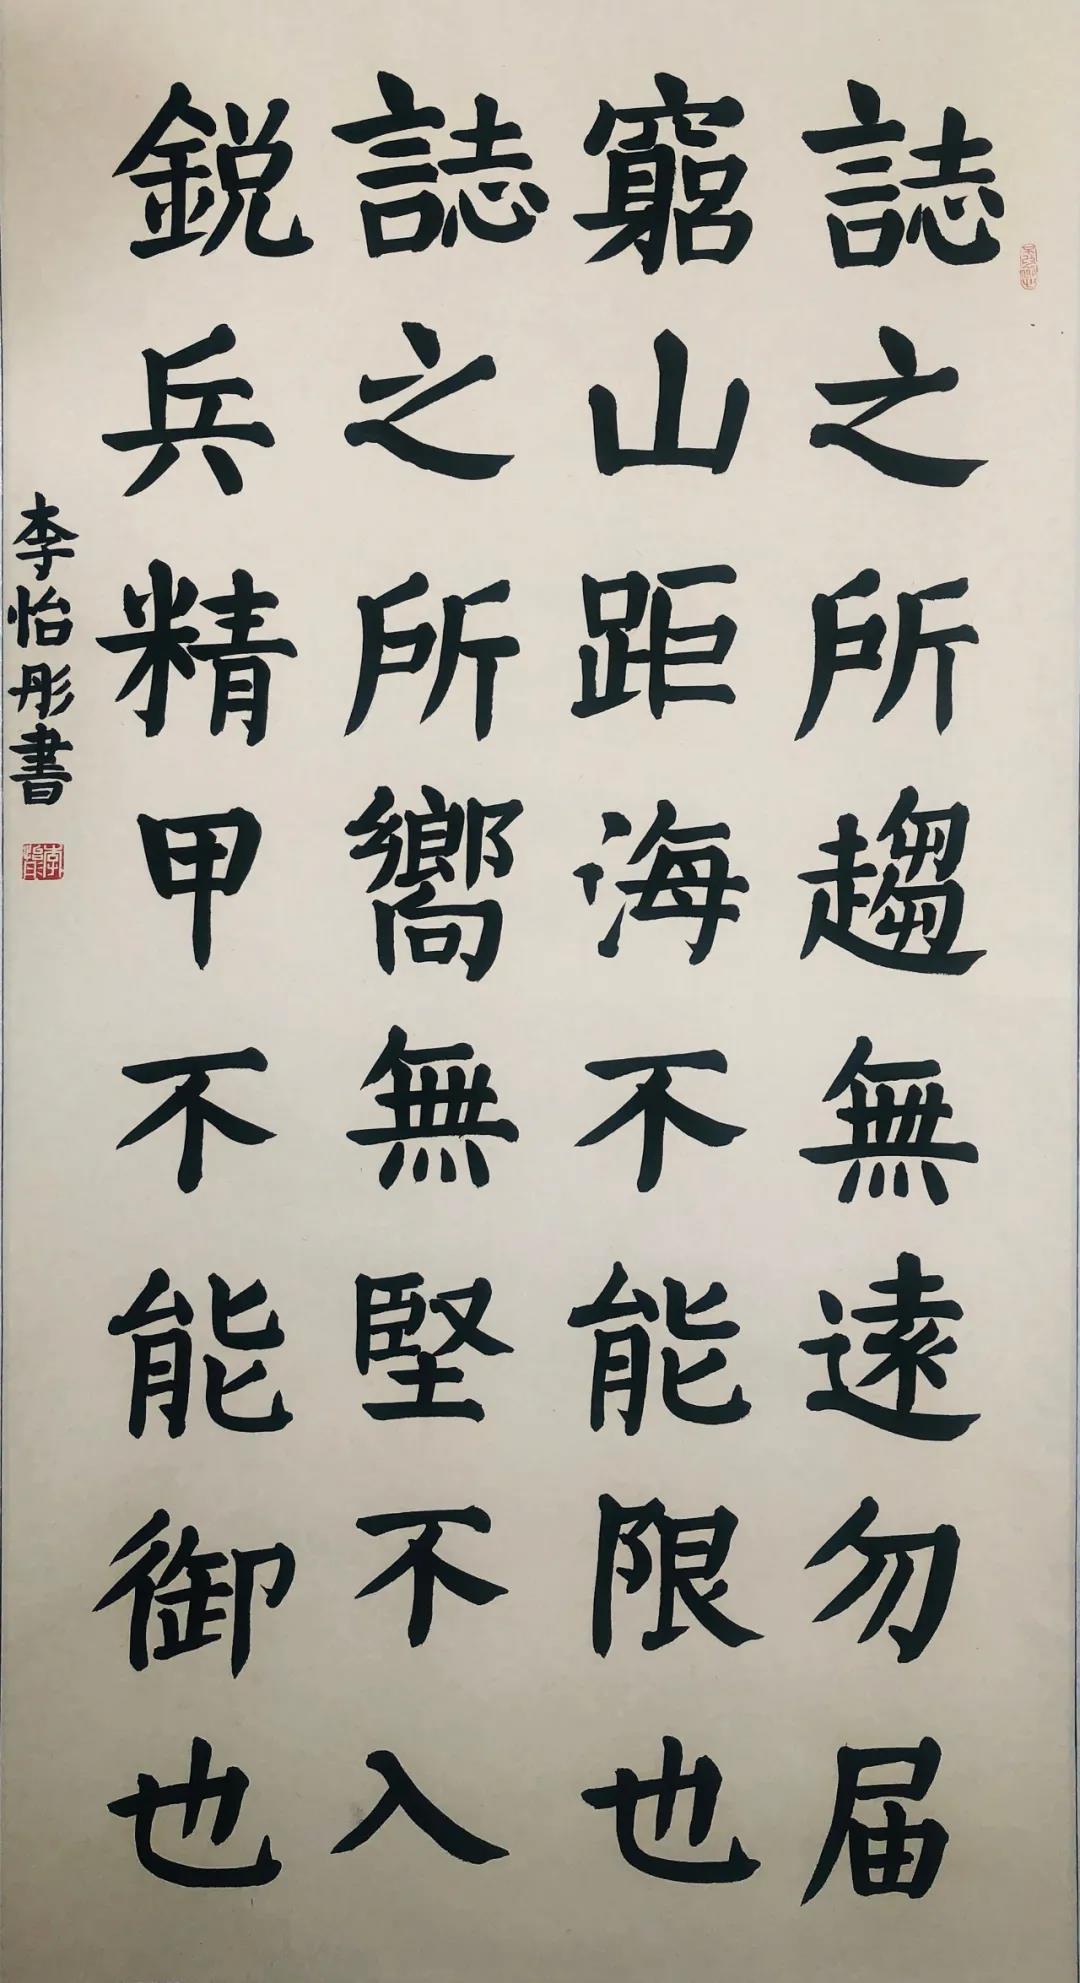 誌之所趨無遠勿届
窮山距海不能限也
誌之所嚮無堅不入
鋭兵精甲不能御也
李怡彤書